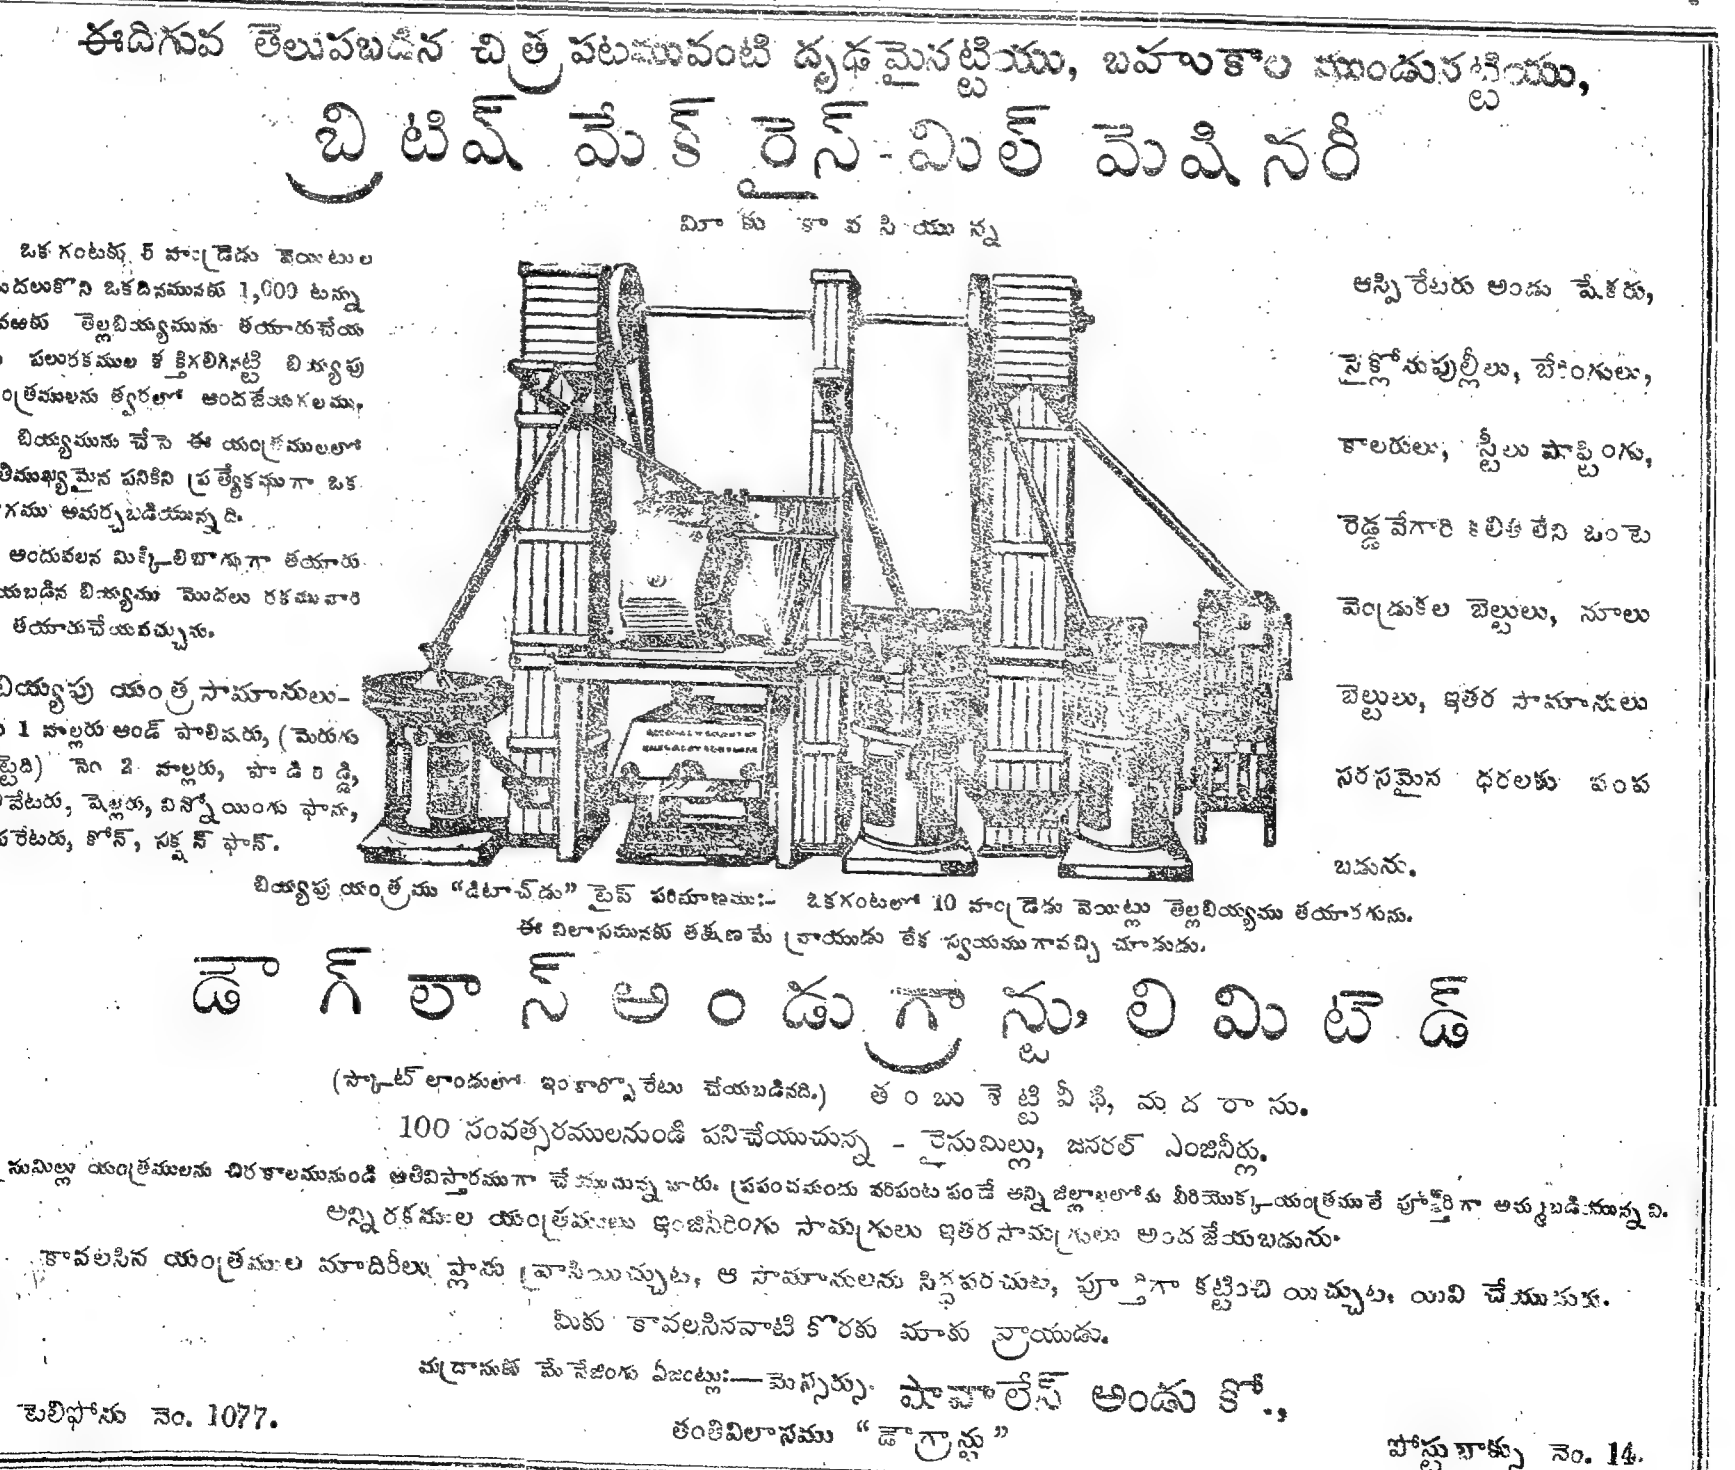 ఈదిగువ తెలుపబడిన చిత్రపటమువంటి దృఢమైనట్టియు, బహుకాల ముండునట్టియు,
బ్రిటిష్ మేక్ రైస్-మిల్ మెషినరీ
మీకు కావసియున్న
ఒకగంటకు 5 హండ్రెడు వెయిటుల
దలుకొని ఒకదినమునకు 1,000 టన్ను
వఱకు తెల్లబియ్యమును తయారుచేయ
పలురకముల శక్తిగలిగినట్టి బియ్యపు
ంత్రములను త్వరలో అందజేయగలము.
బియ్యమును చేసె ఈ యంత్రములలో
తిముఖ్యమైన పనికిని ప్రత్యేకముగా ఒక
గము అమర్చబడియున్నది.
అందువలన మిక్కిలిబాగుగా తయారు
యబడిన బియ్యము మొదలు రకమువారి
తయారుచేయవచ్చును.
బియ్యపు యంత్ర సామానులు-
1 హల్లరు అండ్ పాలిషరు, (మెరుగు
ట్టెది) నెం 2 హల్లరు, పాడిరిడ్డి,
వేటరు, షెల్లరు, విన్నోయింగు ఫాను,
పరేటరు, కోన్, సక్షన్ ఫాన్.
ఆస్పిరేటరు అండు షేకరు,
సైక్లోనుపుల్లీలు, బేరింగులు,
కాలరులు, స్టీలు షాఫ్టింగు,
రెడ్డవేగారి కలితీలేని ఒంటె
వెండ్రుకల బెల్టులు, నూలు
బెల్టులు, ఇతర సామానులు
సరసమైన ధరలకు పంప
బడును.
బియ్యపు యంత్రము “డిటాచ్‌డు” టైప్ పరిమాణము:- ఒకగంటలో 10 హండ్రెడు వెయిట్లు తెల్లబియ్యము తయారగును.
ఈ విలాసమునకు తక్షణమే వ్రాయుడు లేక స్వయముగావచ్చి చూడుడు.
డౌగ్లాస్ అండు గ్రాన్టు, లిమిటెడ్
(స్కాట్‌లాండులో ఇంకార్పొరేటు చేయబడినది.) తంబుశెట్టివీథి, మదరాసు.
100 సంవత్సరములనుండి పనిచేయుచున్న - రైసుమిల్లు, జనరల్ ఎంజినీర్లు.
సుమిల్లు యంత్రములను చిరకాలమునుండి అతివిస్తారముగా చేయుచున్నవారు. ప్రపంచమందు వరిపంట పండే అన్ని జిల్లాలలోను వీరియొక్క యంత్రములే పూర్తిగా అమ్మబడియున్నవి.
అన్నిరకముల యంత్రములు ఇంజినీరింగు సామగ్రులు ఇతరసామగ్రులు అందజేయబడును.
కావలసిన యంత్రముల మాదిరీలు, ప్లాను వ్రాసియిచ్చుట, ఆ సామానులను సిద్ధపరచుట, పూర్తిగా కట్టించి యిచ్చుట, యివి చేయుదుము.
మీకు కావలసినవాటి కొరకు మాకు వ్రాయుడు.
మద్రాసుకు మేనేజింగు ఏజంట్లు:—మెస్సర్సు షావాలేస్ అండు కో.,
టెలిఫోను నెం. 1077.
తంతివిలాసము “డౌగ్రాన్టు”
పోస్టుబాక్సు నెం. 14.